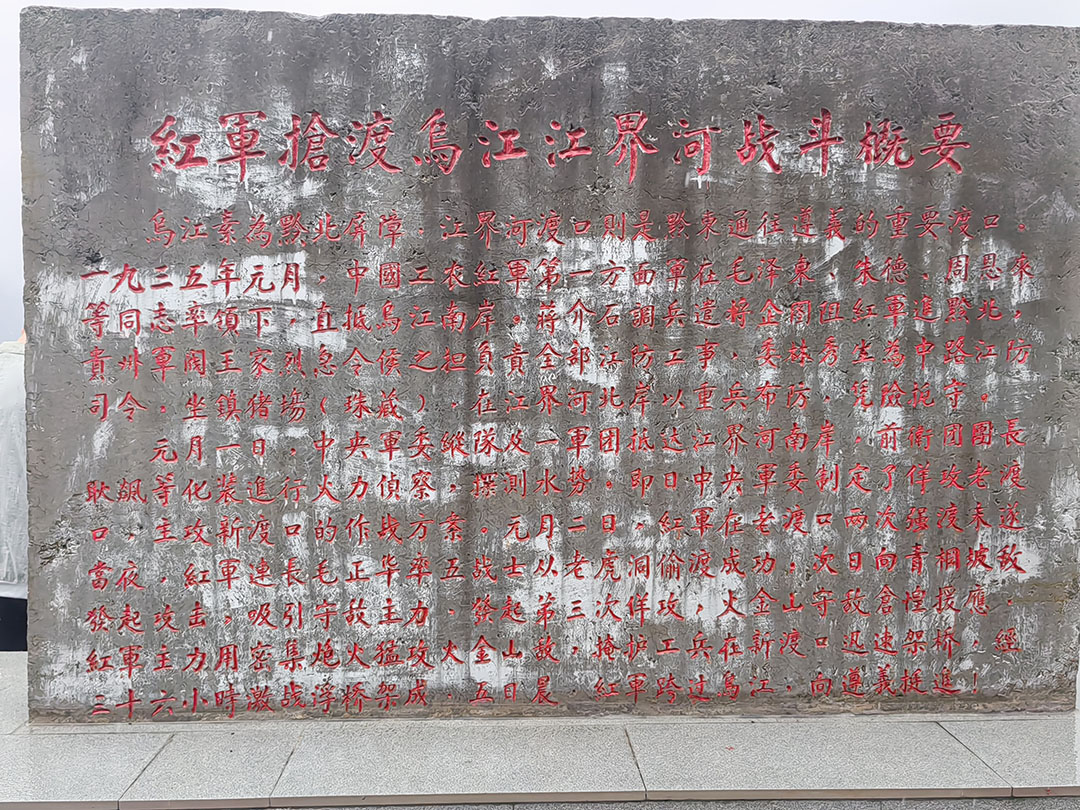 紅軍搶渡烏江江界河战斗概要
烏江素為黔北屏障，江界河渡口則是黔東通往遵義的重要渡口。
一九三五年元月，中國工农紅軍第一方面軍在毛泽東、朱德、周恩來
等同志率領下，直抵烏江南岸。蔣介石調兵遣将企圖阻紅軍進黔北，
貴州軍閥王家烈急令侯之担負責全部江防工事，委林秀生為中路江防
司令，坐鎮猪場（珠蔵），在江界河北岸以重兵布防，凭險扼守。
元月一日，中央軍委縱隊及一軍团抵达江界河南岸，前衛团團長
耿飈等化装進行火力偵察，撰測水势。即日中央軍委制定了佯攻老渡
口、主攻新渡口的作战方案。元月二日，紅軍在老渡口两次强渡未遂
當夜，紅軍連長毛正华率五战士从老虎洞偷渡成功，次日向青楜坡敌
發起攻击，吸引守敌主力，發起第三次佯攻，火金山守敌倉惶援應。
紅軍主力用密集炮火猛攻火金山敌，掩护工兵在新渡口迅速架桥，經
三十六小時激战浮桥架成，五日晨，紅軍跨过烏江，向遵義挺進！